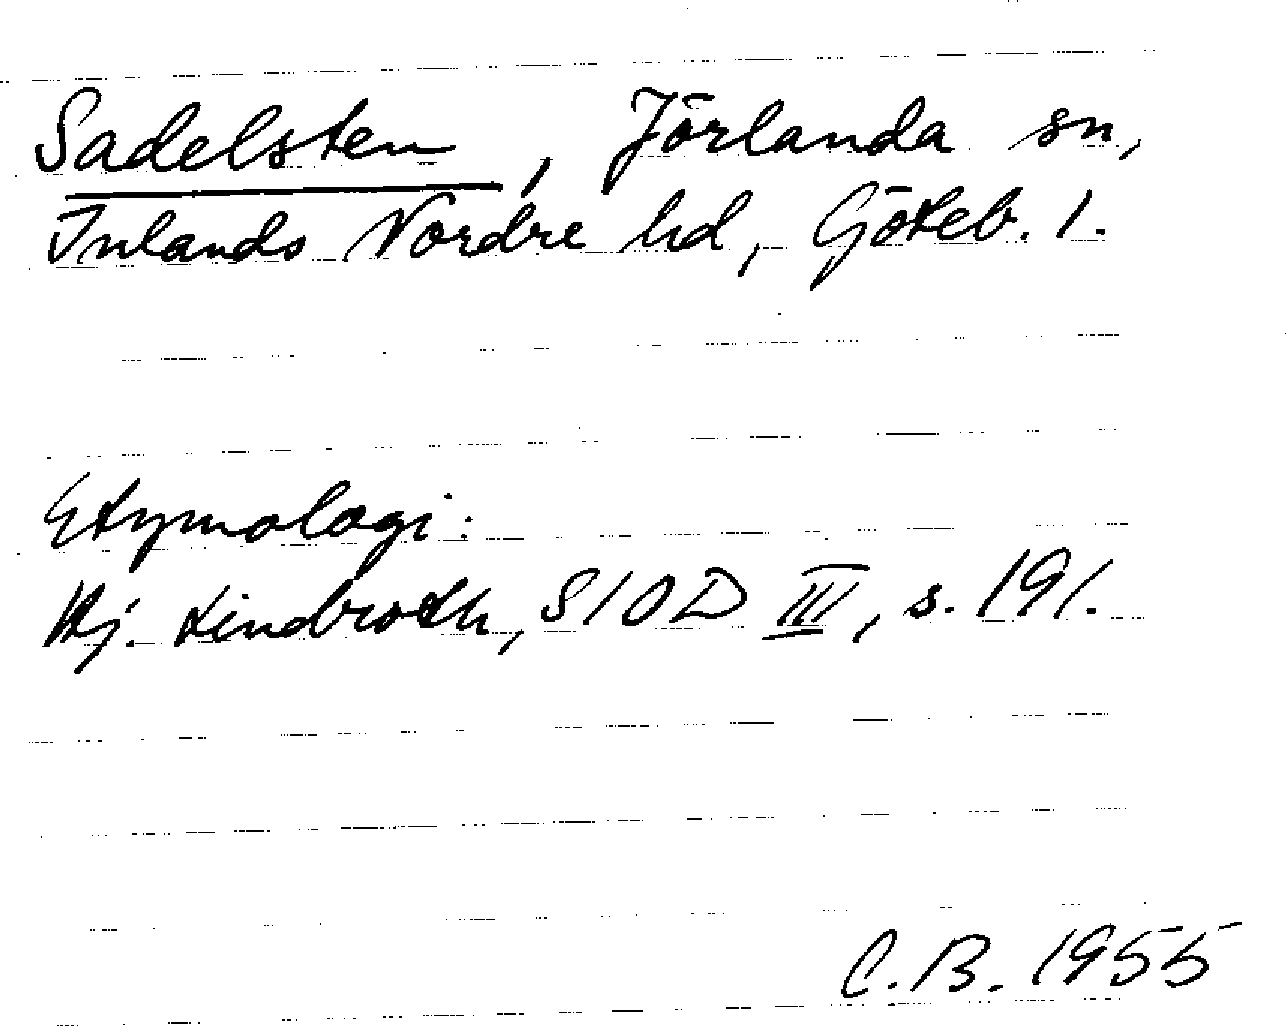 Sadelsten, Jörlanda sn,
Inlands Nordre hd, Göteb. l.
Etymologi:
Hj. Lindroth, SIOD III, s. 191.
C.B. 1955